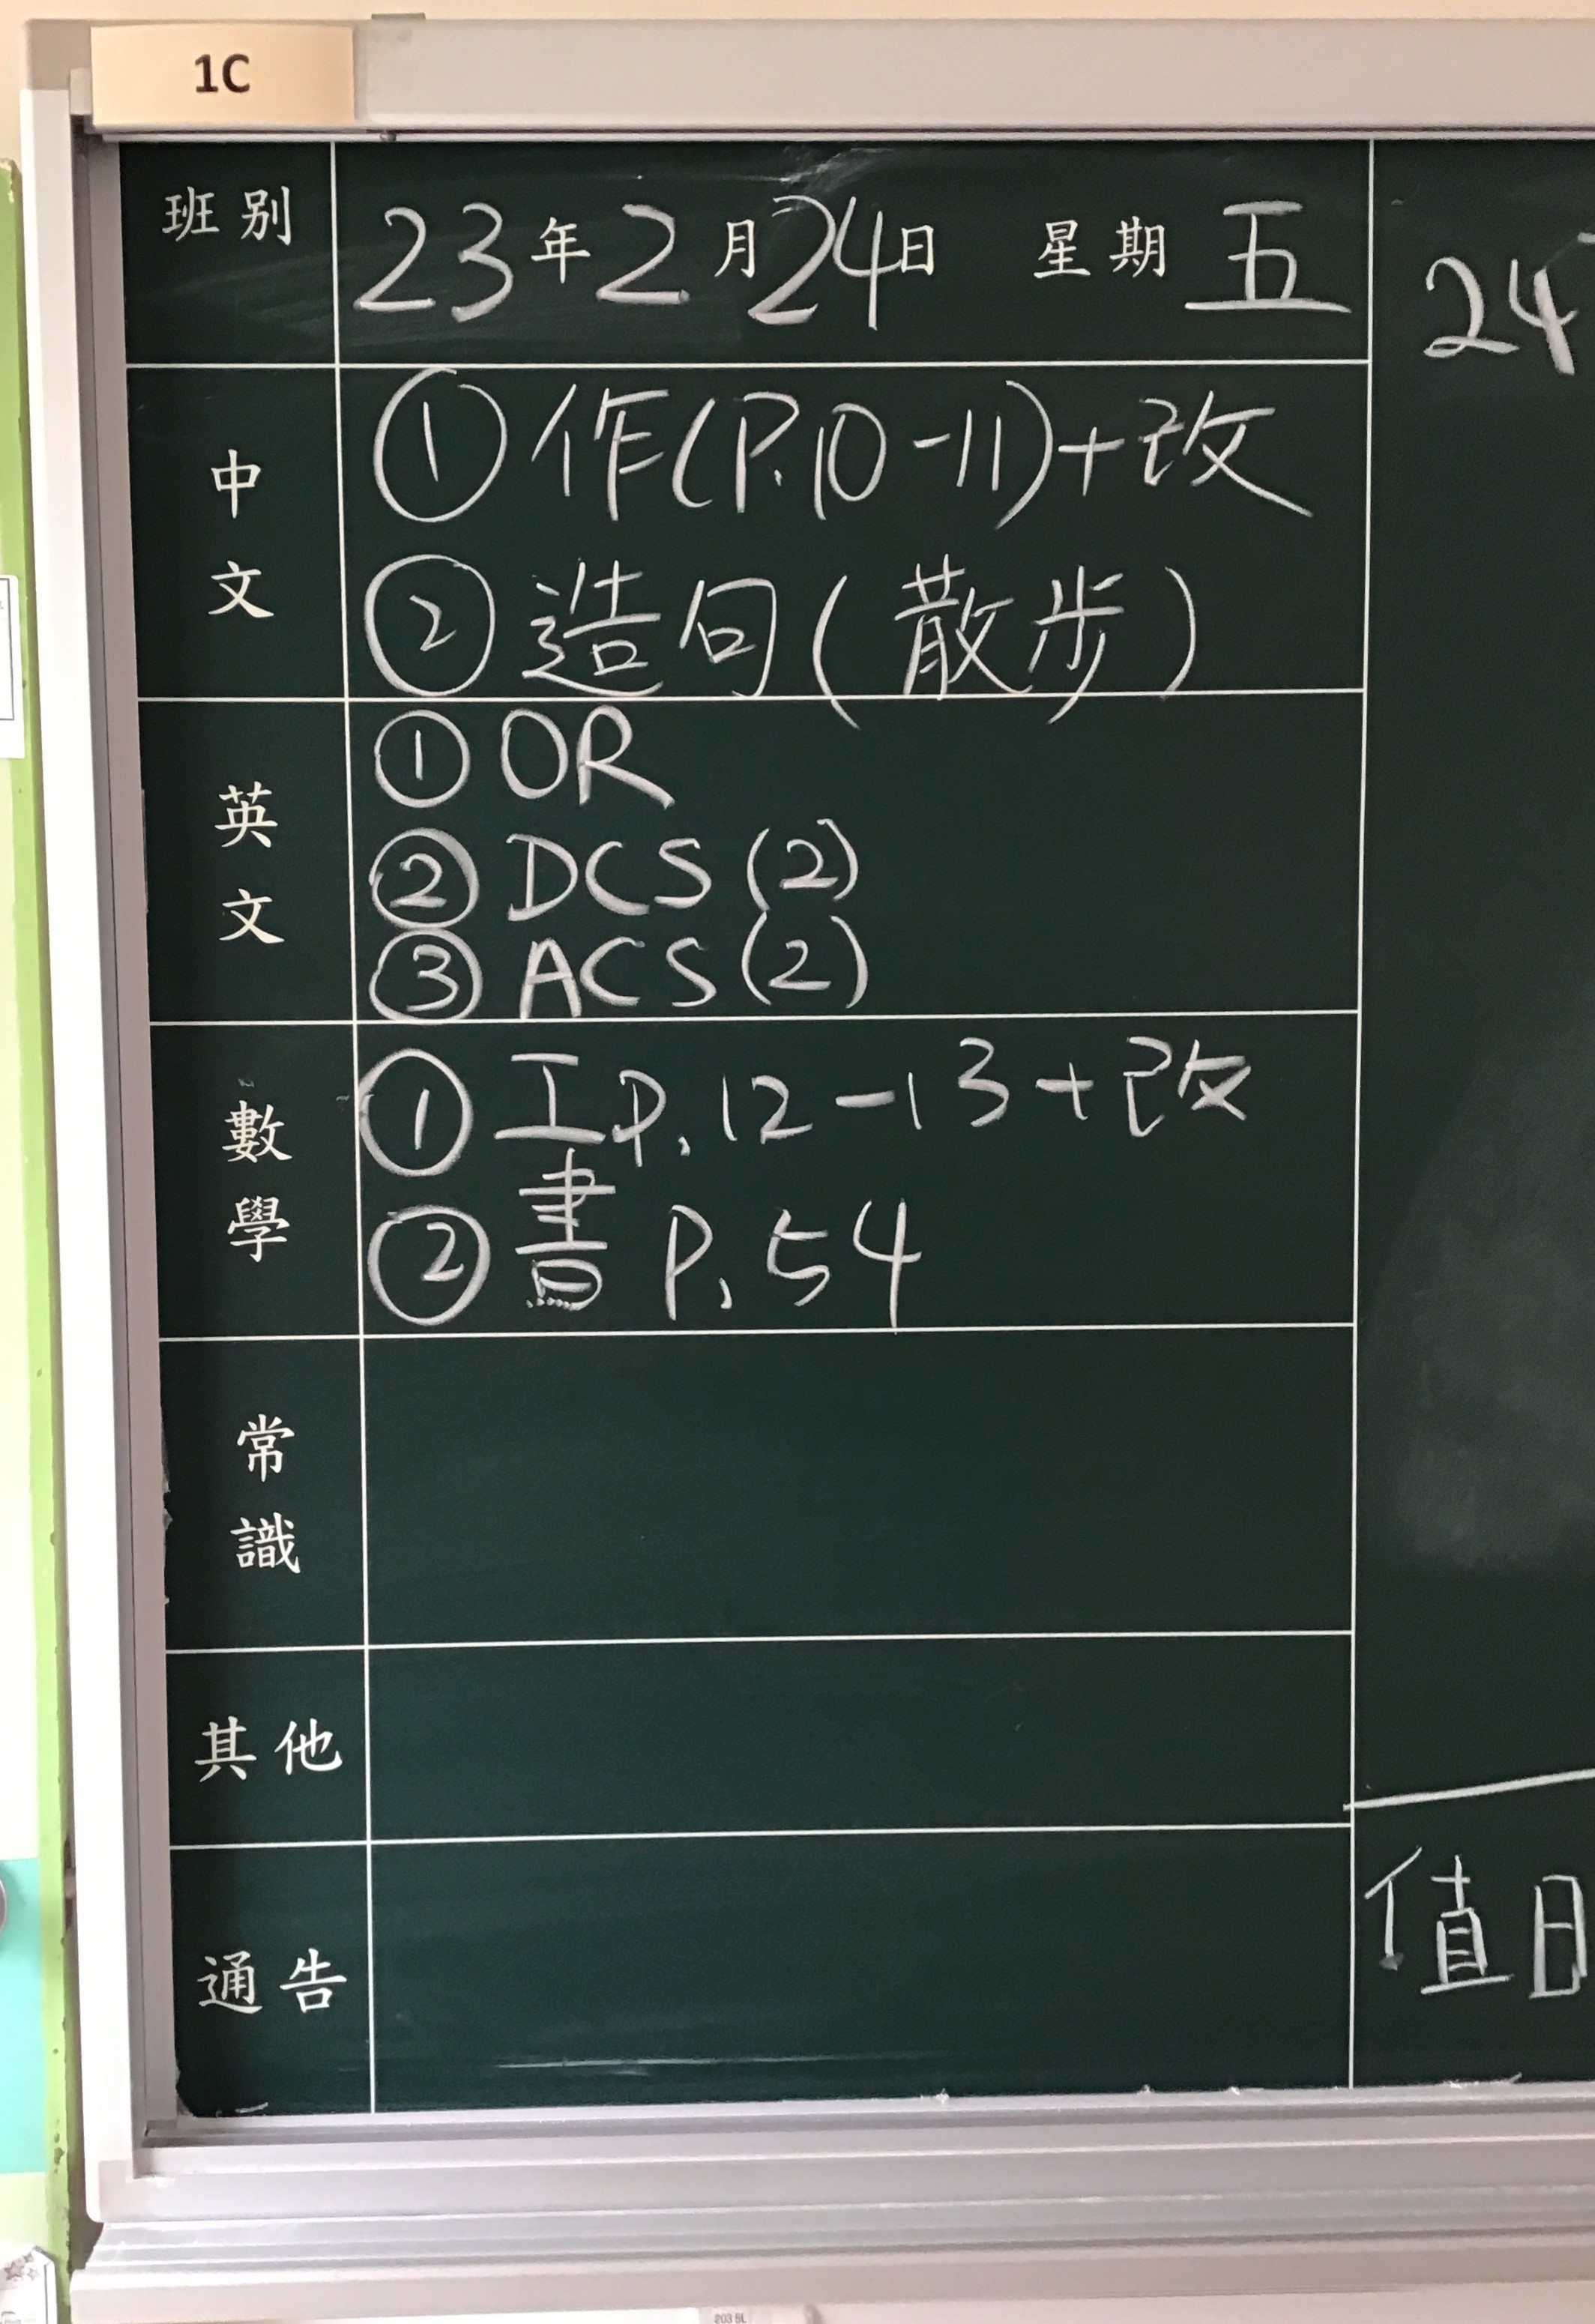 1C
班別
23年2月24日 星期五
中文
①作(P.10-11)+改
②造句(散步)
英文
①OR
②DCS(2)
③ACS(2)
數學
①工P.12-13+改
②書P.54
常識
其他
通告
24
值日
203 5L